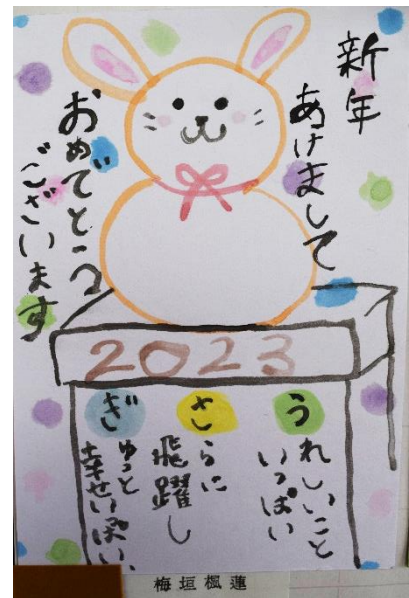 新年
あけまして
おめでとう
ございます
2023
うれしいこと
いっぱい
さらに
飛躍し
ぎゅっと
幸せいっぱい
梅垣楓蓮